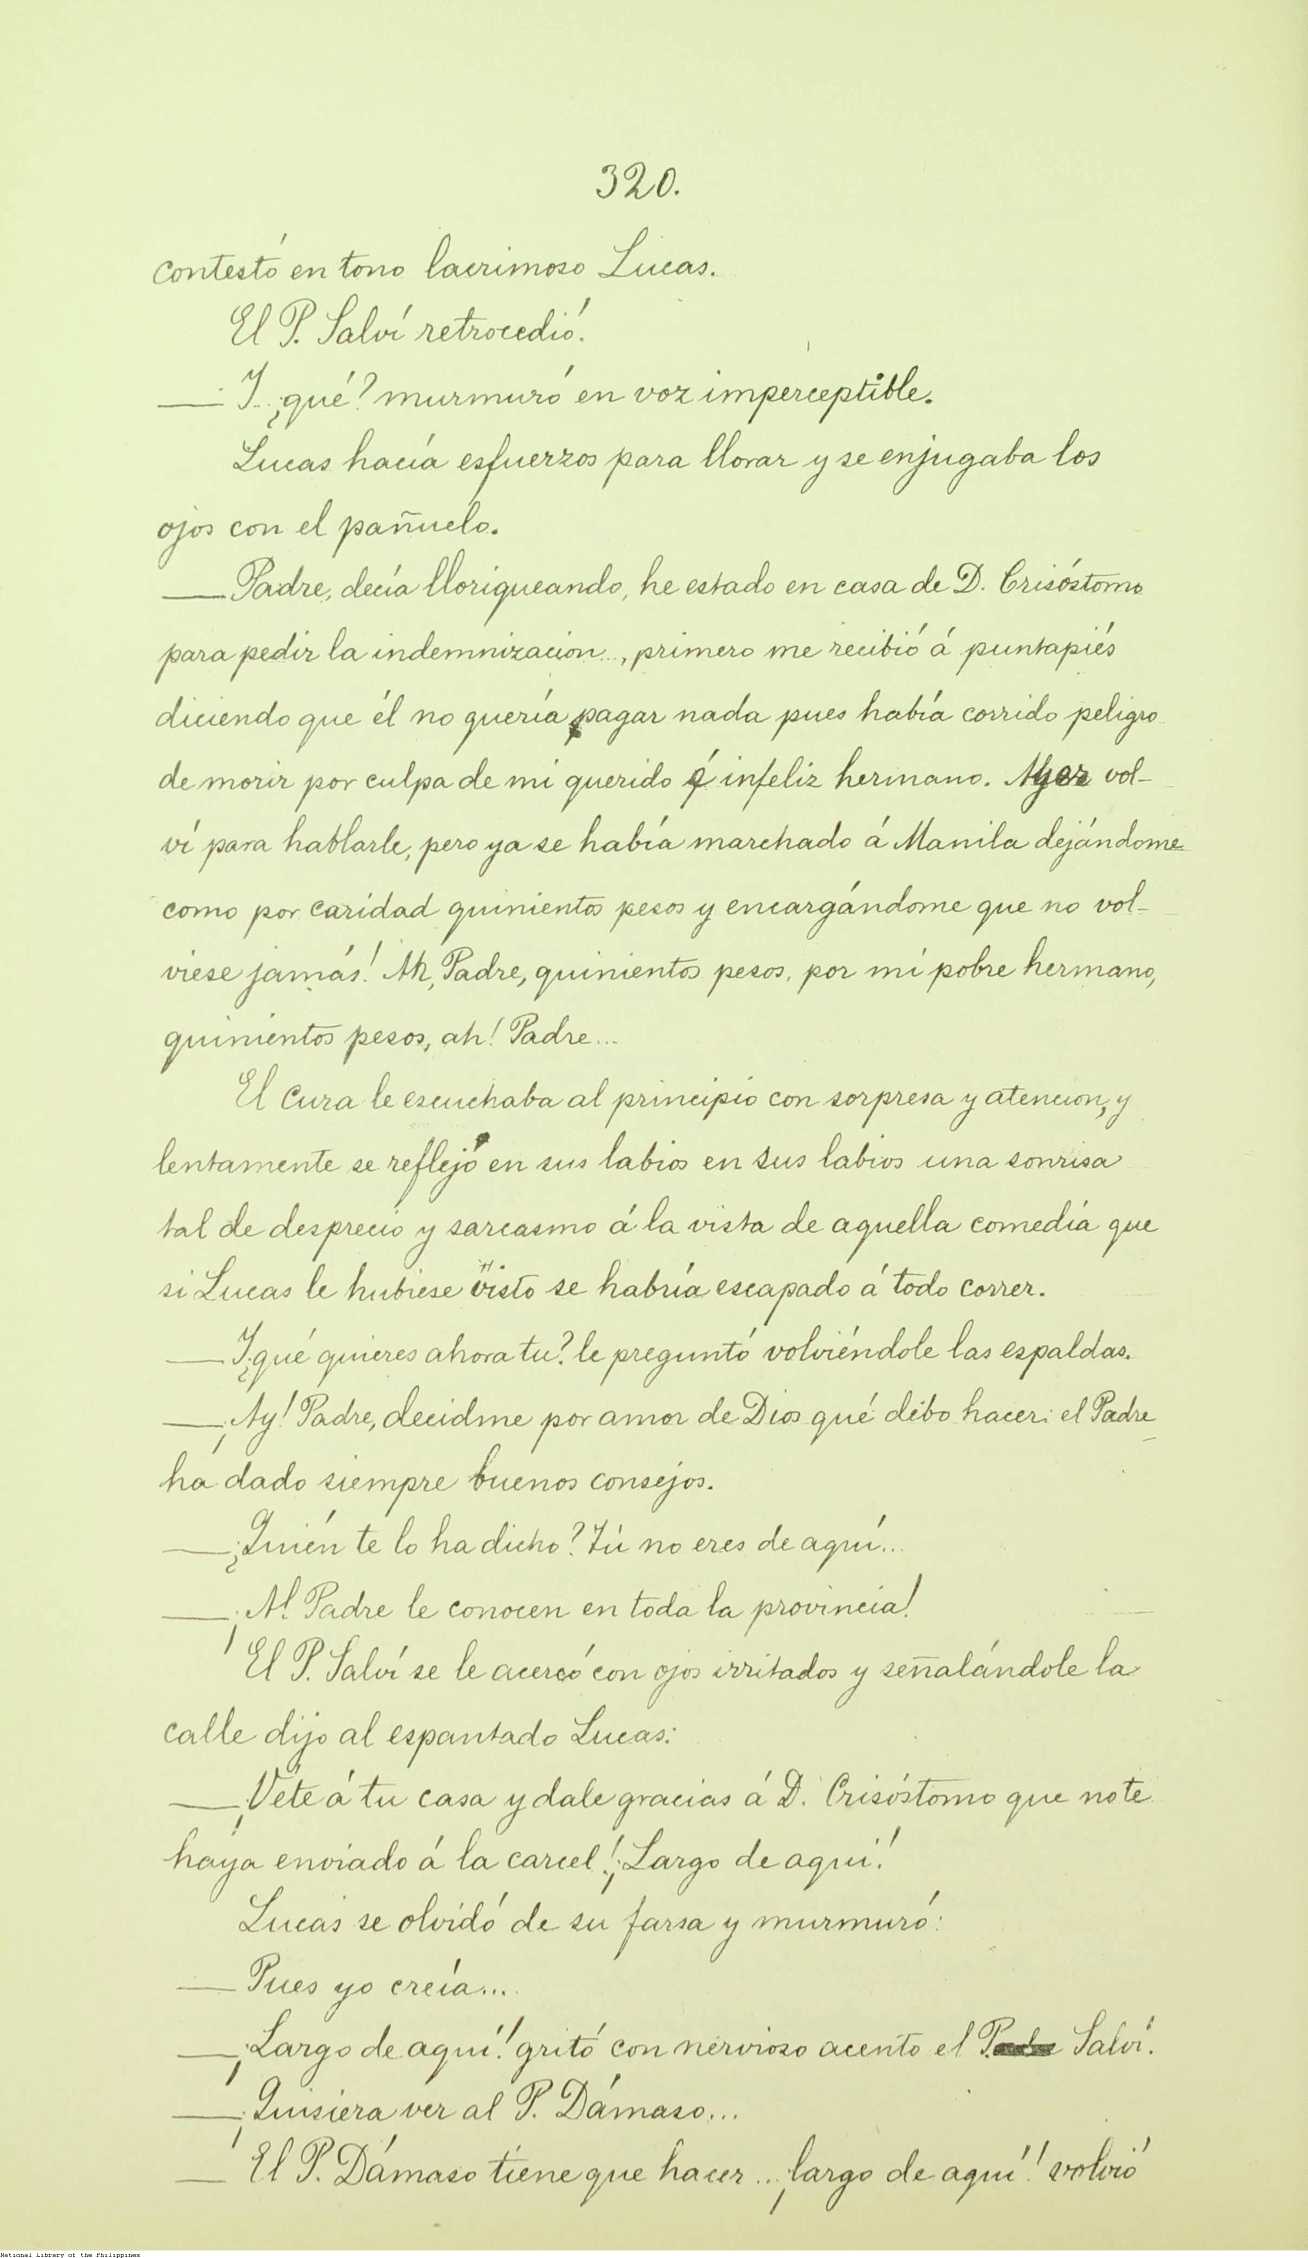 320.
contestó en tono lacrimoso Lucas.
El P. Salví retrocedió.
— Y ¿qué? murmuró en voz imperceptible.
Lucas hacía esfuerzos para llorar y se enjugaba los
ojos con el pañuelo.
— Padre, decía lloriqueando, he estado en casa de D. Crisóstomo
para pedir la indemnizacion..., primero me recibió á puntapiés
diciendo que él no quería pagar nada pues había corrido peligro
de morir por culpa de mi querido é infeliz hermano. Ayer vol-
ví para hablarle, pero ya se había marchado á Manila dejándome
como por caridad quinientos pesos y encargándome que no vol-
viese jamás! Ah, Padre, quinientos pesos, por mi pobre hermano,
quinientos pesos, ah! Padre...
El cura le escuchaba al principio con sorpresa y atencion, y
lentamente se reflejó en sus labios en sus labios una sonrisa
tal de desprecio y sarcasmo á la vista de aquella comedia que
si Lucas le hubiese visto se habría escapado á todo correr.
— Y ¿qué quieres ahora tu? le preguntó volviéndole las espaldas.
— ¡Ay! Padre, decidme por amor de Dios qué debo hacer: el Padre
ha dado siempre buenos consejos.
— ¿Quién te lo ha dicho? Tú no eres de aquí...
— ¡Al Padre le conocen en toda la provincia!
El P. Salví se le acercó con ojos irritados y señalándole la
calle dijo al espantado Lucas:
— ¡Véte á tu casa y dale gracias á D. Crisóstomo que no te
haya enviado á la carcel! ¡Largo de aquí!
Lucas se olvidó de su farsa y murmuró:
— Pues yo creía...
— ¡Largo de aquí! gritó con nervioso acento el P. Salví.
— ¡Quisiera ver al P. Dámaso...
— El P. Dámaso tiene que hacer... ¡largo de aquí! volvió
National Library of the Philippines